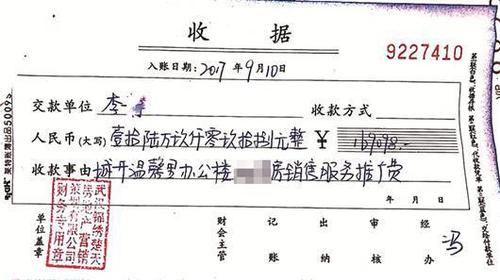 收据
9227410
入账日期：2017年9月10日
交款单位 李 收款方式
人民币(大写) 壹拾陆万玖仟零玖拾捌元整 ￥169098.-
收款事由 城开温馨里办公楼 房销售服务推广费
年 月 日
武汉锦绣楚天
房地产营销
策划有限公司
财务专用章
收款单位盖章 财会主管 记账 出纳 审核 经办 冯